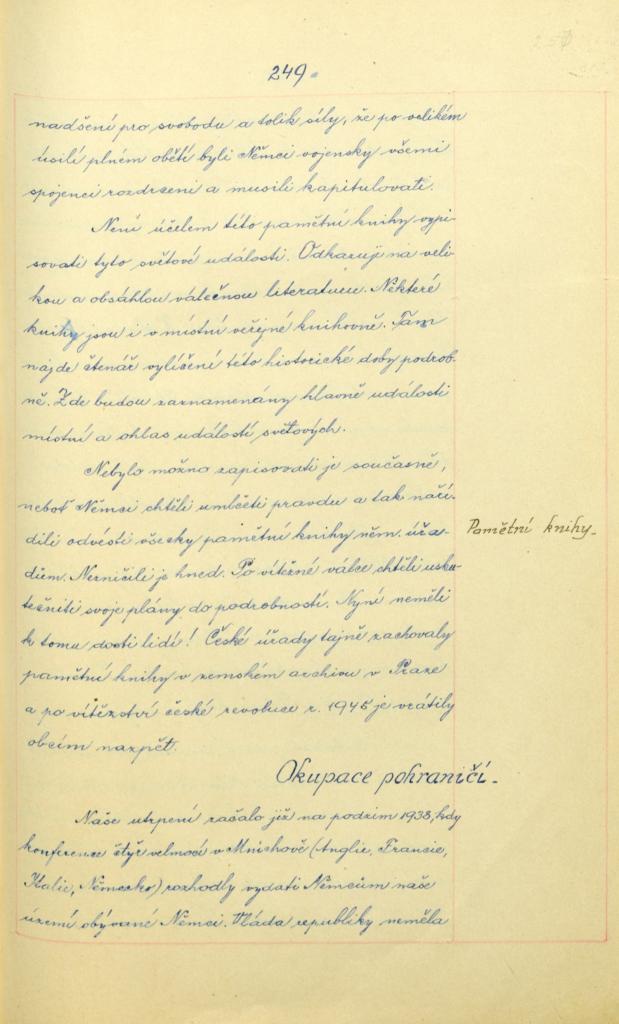 249.
nadšení pro svobodu a tolik síly, že po velikém
úsilí plném obětí byli Němci vojensky všemi
spojenci rozdrceni a musili kapitulovati.
Není účelem této pamětní knihy vypi-
sovati tyto světové události. Odkazuji na veli-
kou a obsáhlou válečnou literaturu. Některé
knihy jsou i v místní veřejné knihovně. Tam
najde čtenář vylíčení této historické doby podrob-
ně. Zde budou zaznamenány hlavně události
místní a ohlas událostí světových.
Nebylo možno zapisovati je současně,
neboť Němci chtěli umlčeti pravdu a tak naří-
dili odvésti všecky pamětní knihy něm. úřa-
dům. Nezničili je hned. Po vítězné válce chtěli usku-
tečniti svoje plány do podrobností. Nyní neměli
k tomu dosti lidí! České úřady tajně zachovaly
pamětní knihy v zemském archivu v Praze
a po vítězství české revoluce r. 1945 je vrátily
obcím nazpět.
Pamětní knihy.
Okupace pohraničí.
Naše utrpení začalo již na podzim 1938, kdy
konference čtyř velmocí v Mnichově (Anglie, Francie,
Italie, Německo) rozhodly vydati Němcům naše
území obývané Němci. Vláda republiky neměla